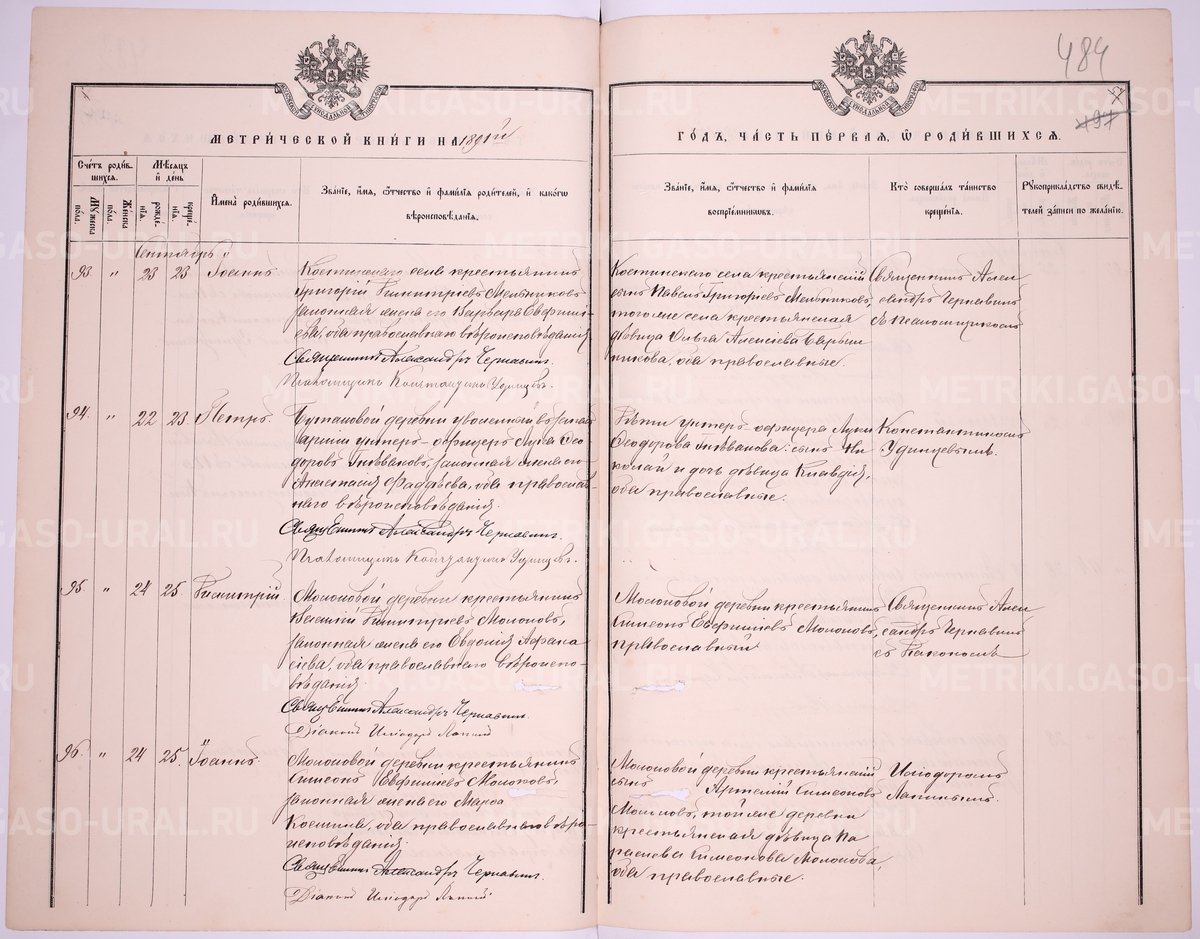 484
197
МЕТРИЧЕСКОЙ КНИГИ НА 1891й
ГОДЪ, ЧАСТЬ ПЕРВАЯ, Ѡ РОДИВШИХСЯ.
Счетъ родив-
шихся.
Мѣсяцъ
и день
Мужеска
пола.
Женска
пола.
рожде-
нія.
креще-
нія.
Имена родившихся.
Званіе, имя, ѿчество и фамилія родителей, и какогѡ
вѣроисповѣданія.
Званіе, имя, ѿчество и фамилія
воспріемниковъ.
Кто совершалъ таинство
крещенія.
Рукоприкладство свидѣ-
телей записи по желанію.
Сентябрь
93 " 23 23 Іоаннъ
Костинскаго села крестьянинъ
Григорій Димитріевъ Мельниковъ,
законная жена его Варвара Евфимі-
ева, оба православнаго вѣроисповѣданія
Священникъ Александръ Чернавинъ.
Псаломщикъ Константинъ Удинцевъ.
Костинскаго села крестьянскій
сынъ Павелъ Григоріевъ Мельниковъ,
того же села крестьянская
дѣвица Ольга Алексіева Барыш
никова, оба православные.
Священникъ Алек
сандръ Чернавинъ
съ Псаломщикомъ
94. " 22 23 Петръ.
деревни уволенный въ запасъ
арміи унтеръ-офицеръ Лука Ѳео-
доровъ законная жена его
Анастасія Фадѣева, оба православ-
наго вѣроисповѣданія.
Священникъ Александръ Чернавинъ.
Псаломщикъ Константинъ Удинцевъ.
Дѣти унтеръ-офицера Луки
Ѳеодорова сынъ Ни
колай и дочь дѣвица Клавдія,
оба православные.
Константиномъ
Удинцевымъ.
95. " 24 25. Димитрій.
Молоковой деревни крестьянинъ
Димитріевъ Молоковъ,
законная жена его Евдокія Аѳана
сіева, оба православнаго вѣроиспо-
вѣданія.
Священникъ Александръ Чернавинъ.
Діаконъ Исидоръ Лапинъ
Молоковой деревни крестьянинъ
Симеонъ Евфиміевъ Молоковъ,
православный
Священникъ Алек
сандръ Чернавинъ
съ Діакономъ
96. " 24 25. Іоаннъ.
Молоковой деревни крестьянинъ
Симеонъ Евфиміевъ Молоковъ,
законная жена его Марѳа
оба православнаго вѣро-
исповѣданія.
Священникъ Александръ Чернавинъ.
Діаконъ Исидоръ Лапинъ
Молоковой деревни крестьянскій
сынъ Артемій Симеоновъ
Молоковъ, той же деревни
крестьянская дѣвица Па
раскева Симеонова Молокова,
оба православные.
Исидоромъ
Лапинымъ.
METRIKI.GASO-URAL.RU